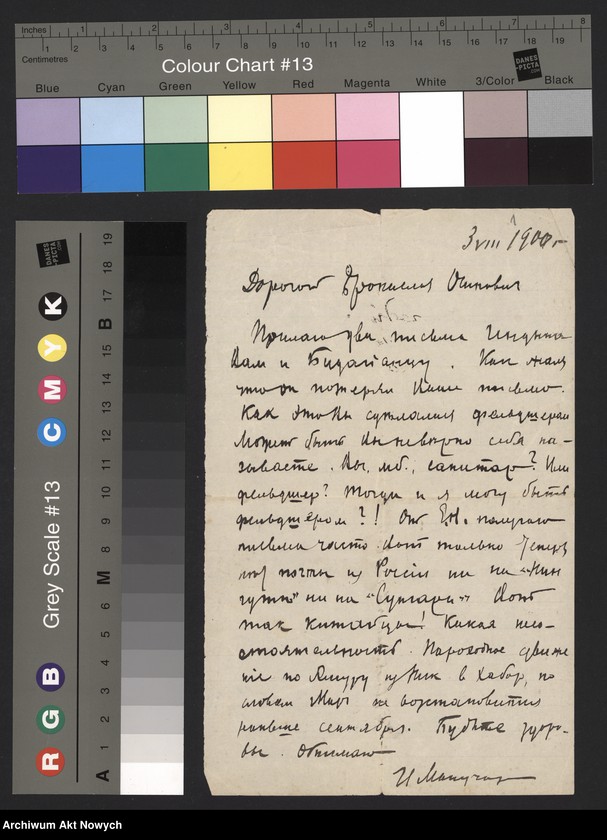 Inches 1 2 3 4 5 6 7 8
Centimetres 1 2 3 4 5 6 7 8 9 10 11 12 13 14 15 16 17 18 19
Colour Chart #13
DANES-PICTA.COM
Blue Cyan Green Yellow Red Magenta White 3/Color Black
Grey Scale #13
R G B C M Y K
A 1 2 3 4 5 6 M 8 9 10 11 12 13 14 15 B 17 18 19
3 VIII 1900 г
Дорогой Бронислав Осипович
Прилагаю два письма
Вам и . Как жаль
что он потерял Ваше письмо.
Как это Вы сделались фельдшером
Может быть Вы неверно себя на-
зываете. Вы, м.б., санитар? Или
фельдшер? Тогда и я могу быть
фельдшером?! От получаю
письма часто. Вот только
почты из России ни на
ни на "Сунгари". Вот
так китайцы! Какая несо-
стоятельность. Пароходное движе
ние по Амуру из Ник в Хабар, по
словам не восстановится
раньше сентября. Будьте здоро-
вы. Обнимаю
Archiwum Akt Nowych